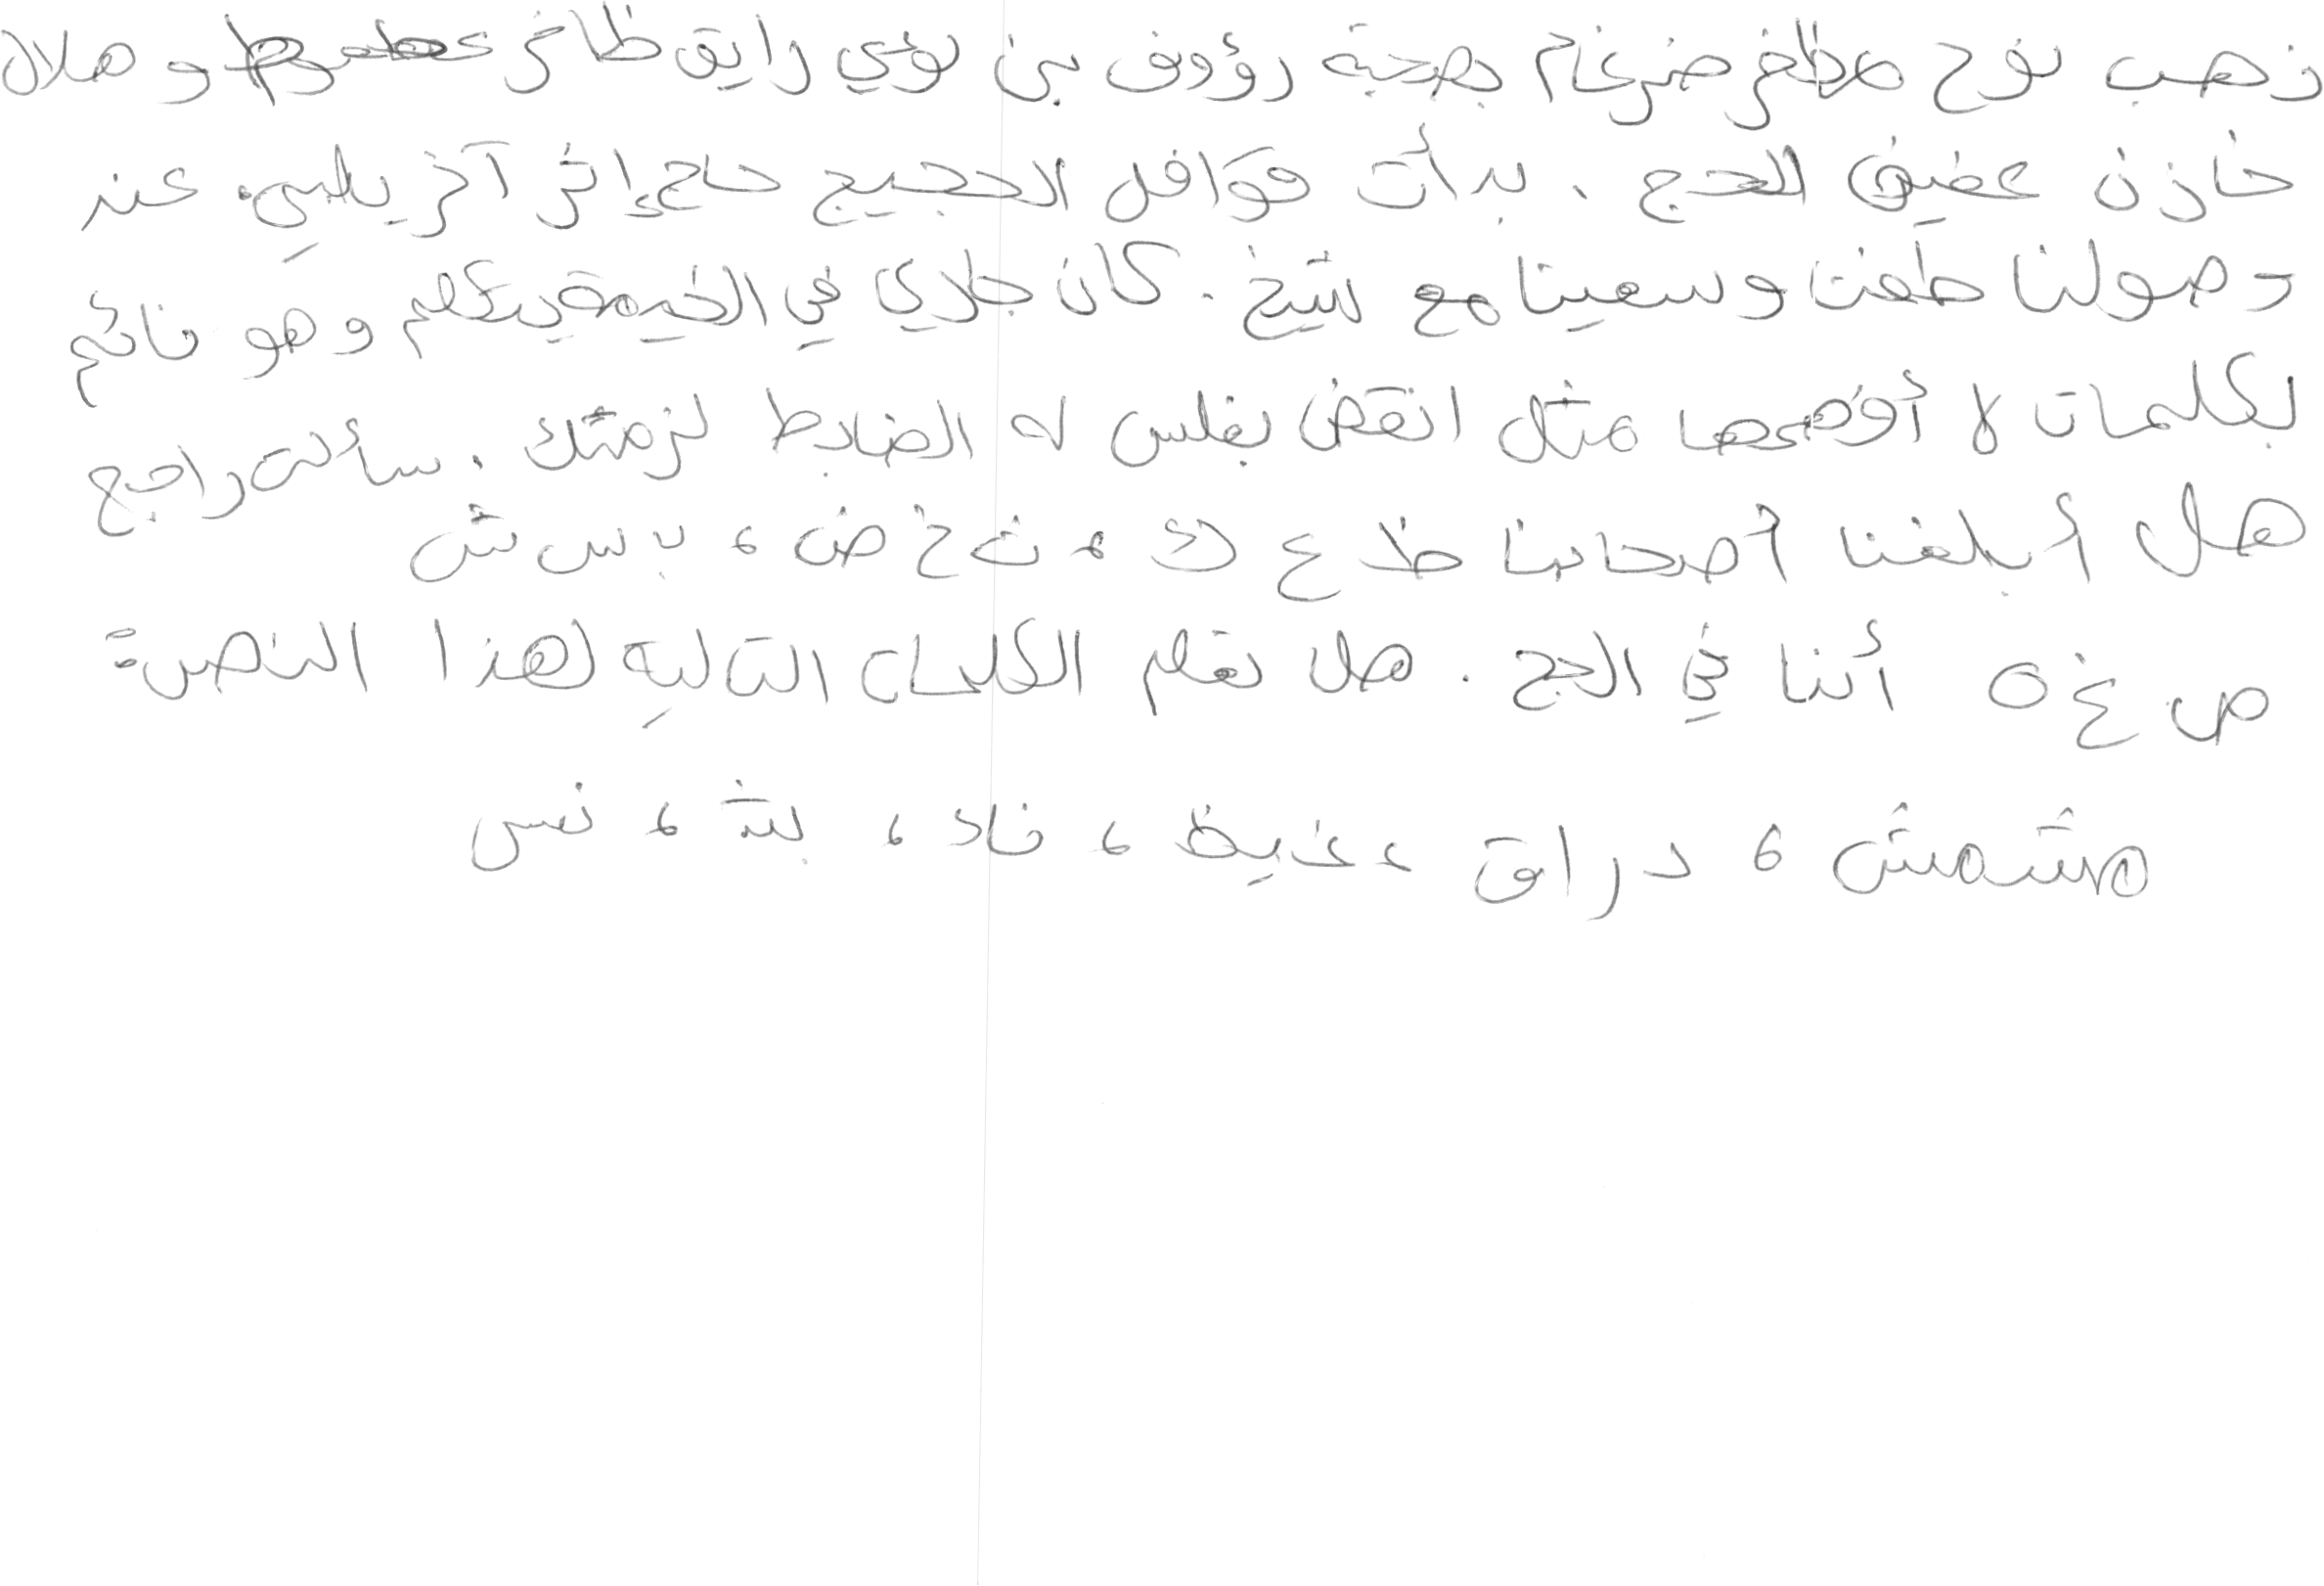 ذهب نوح مظفر ضرغام بصحبة رؤوف بن لؤي رايق ظافر و هلال
خازن عفيف الحج . بدأت قوافل الحجيج حاج إثر آخر يلبي، عند
وصولنا طفنا وسعينا مع شيخ . كان جاري في الخيمة يتكلم وهو نائم
بكلمات لا أفهمها مثل انقض بفلس له الضابط لزمتك . سألت راجح
هل أبلغنا أصحابنا ظ ع ك ، ث خ ض ، ب س ش
ص غ ه أننا في الحج . هل تعلم الكلمات التالية لهذا النص :
مشمش ، دراق ، غيظ ، ناد ، بث ، نس